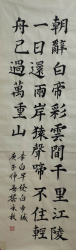 朝辭白帝彩雲間千里江陵
一日還兩岸猿聲啼不住輕
舟已過萬重山
李白早發白帝城
庚子仲春